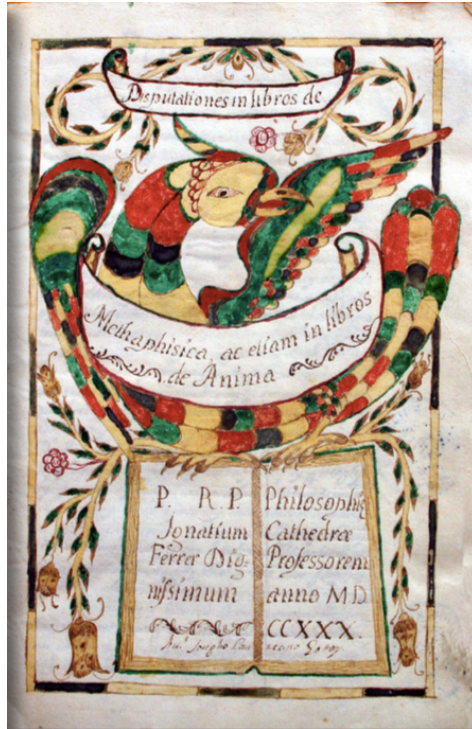 Disputationes in libros de
Methaphisica, ac etiam in libros
de Anima
P. R. P.
Ignatium
Ferrer Dig-
nissimum
Philosophię
Cathedræ
Professorem
anno MD
CCXXX.